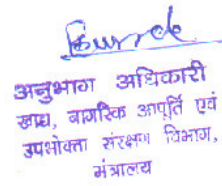 अनुभाग अधिकारी
खाद्य, नागरिक आपूर्ति एवं
उपभोक्ता संरक्षण विभाग,
मंत्रालय